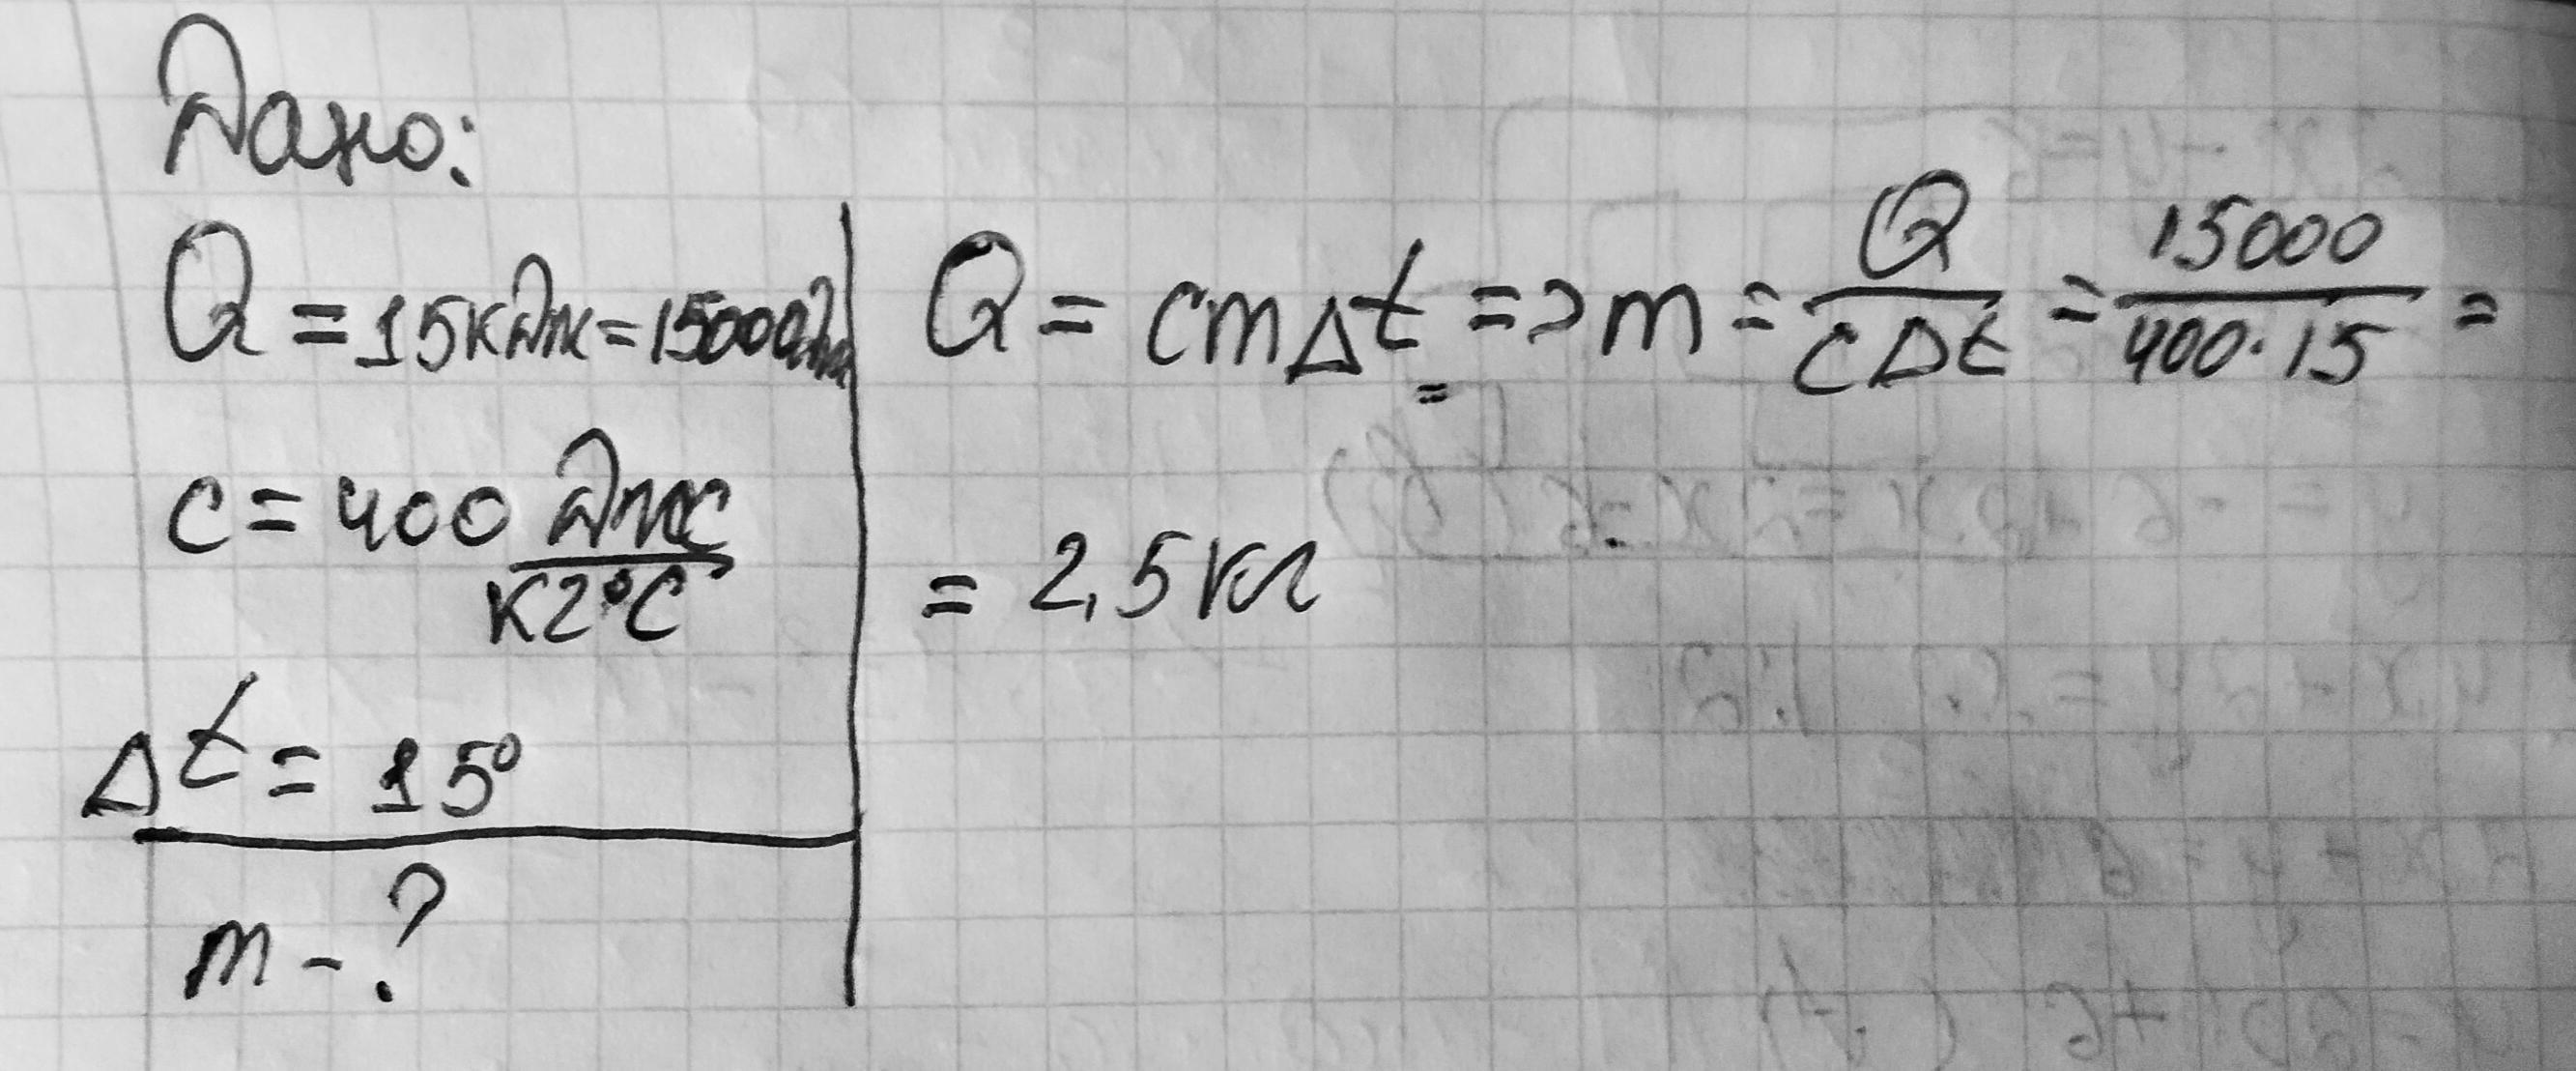 Дано:
Q = 15кДж = 15000Дж
c = 400 Дж/кг°C
Δt = 15°
m - ?
Q = cmΔt => m = Q/cΔt = 15000/400·15 =
= 2,5 кг